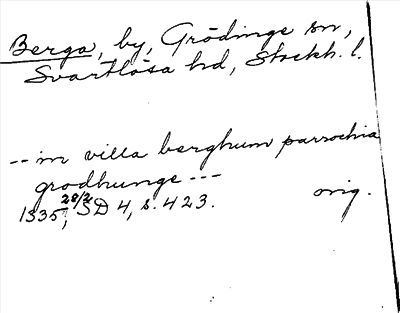 Berga, by, Grödinge sn,
Svartlösa hd, Stockh. l.
-- in villa berghum parrochia
grodhunge ---
1335, 28/2 SD 4, s. 423. orig.